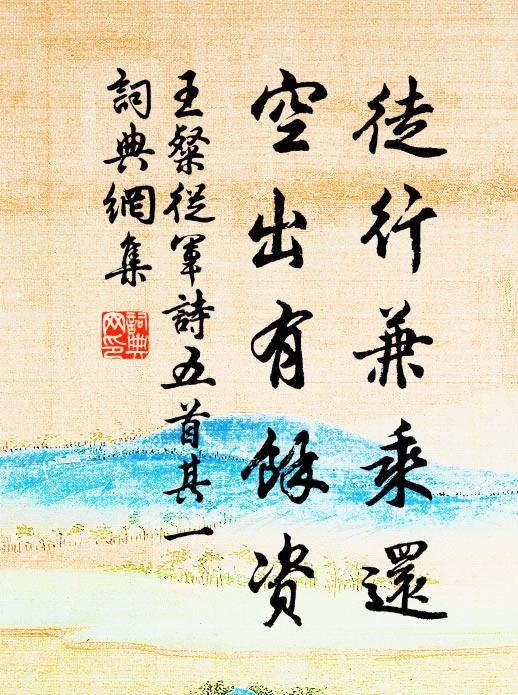 徒行兼乘還
空出有餘資
王粲從軍詩五首其一
詞典網集
詞典網印